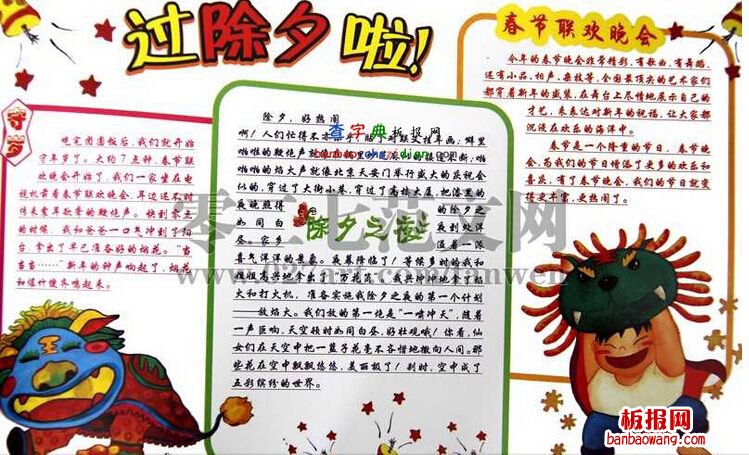 过除夕啦!
守岁
晚宴团圆饭后，我们就开始
守年岁了。大约7点钟，春节联
欢晚会开始了，我们一家坐在
电视机前看春节联欢晚会，耳边还不时
传来震耳欲聋的鞭炮声。快到零
的时候，我和爸爸一口气冲到了阳
台，拿出了早已准备好的烟花。“当
当当……”新年的钟声响起了，烟花
和爆竹便齐鸣起来。
除夕，好热闹
啊！人们忙得不
查字典板报网
啪啪的鞭炮声
啪啪的焰火声就像北京天安门举行盛大的庆祝会
似的，穿过了大街小巷，穿过了高楼大厦，把漆黑的
夜晚照得 的除夕之
如同白 夜到处洋
昼。家乡 溢着一派
除夕之夜
喜气洋洋的景象。夜幕降临了！等候多时的我和
姐姐高兴地拿了“万花筒”，我兴冲冲地拿了
火和打火机，准备实施我除夕之夜的第一个计划
放焰火。我们放的第一炮是“一啸冲天”，随着
一声巨响，天空顿时如同白昼，好壮观哦！你看，仙
女们在天空中把一篮子花毫不吝惜地撒向人间。那
些花在空中飘飘悠悠，美丽极了！刹时，空中成了
五彩缤纷的世界。
春节联欢晚会
今年的春节晚会非常精彩，有歌曲，有舞蹈，
还有小品，相声，杂技等，全国最顶尖的艺术家们
都穿着新年的盛装，在舞台上尽情地展示自己的
才艺，来表达对新年的祝福，让大家都
沉浸在欢乐的海洋中。
春节是一个隆重的节日，春节晚会
为我们的节日增添了更多的欢乐和
喜庆，有了春节晚会，我们的节日就变
得更丰富，更热闹了。
零三七范文网
www.037art.com/fanwen
板报网
banbaowang.com